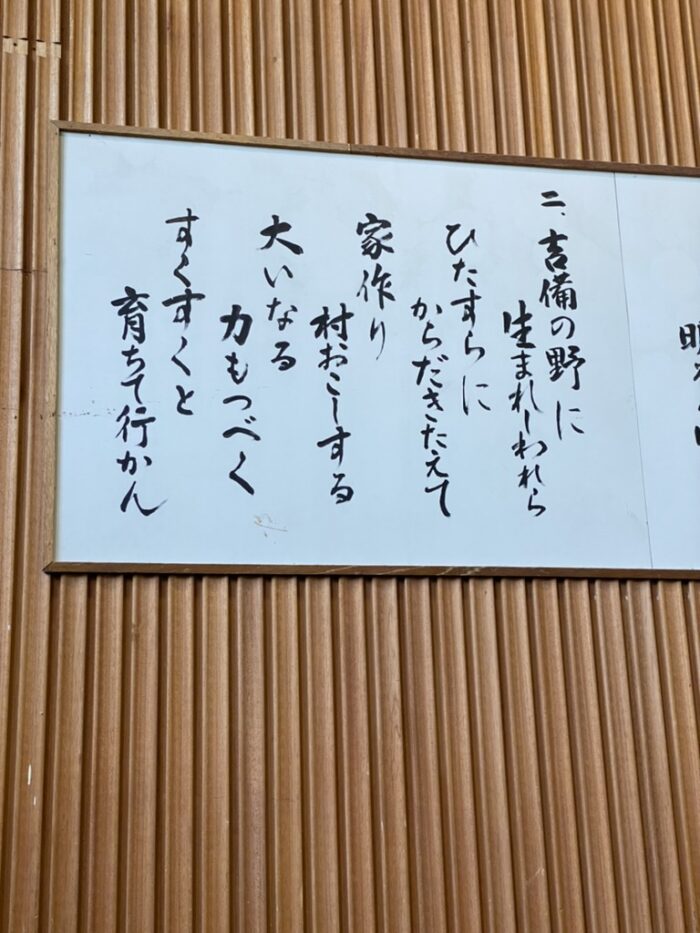 二、吉備の野に
生まれしわれら
ひたすらに
からだきたえて
家作り
村おこしする
大いなる
力もつべく
すくすくと
育ちて行かん